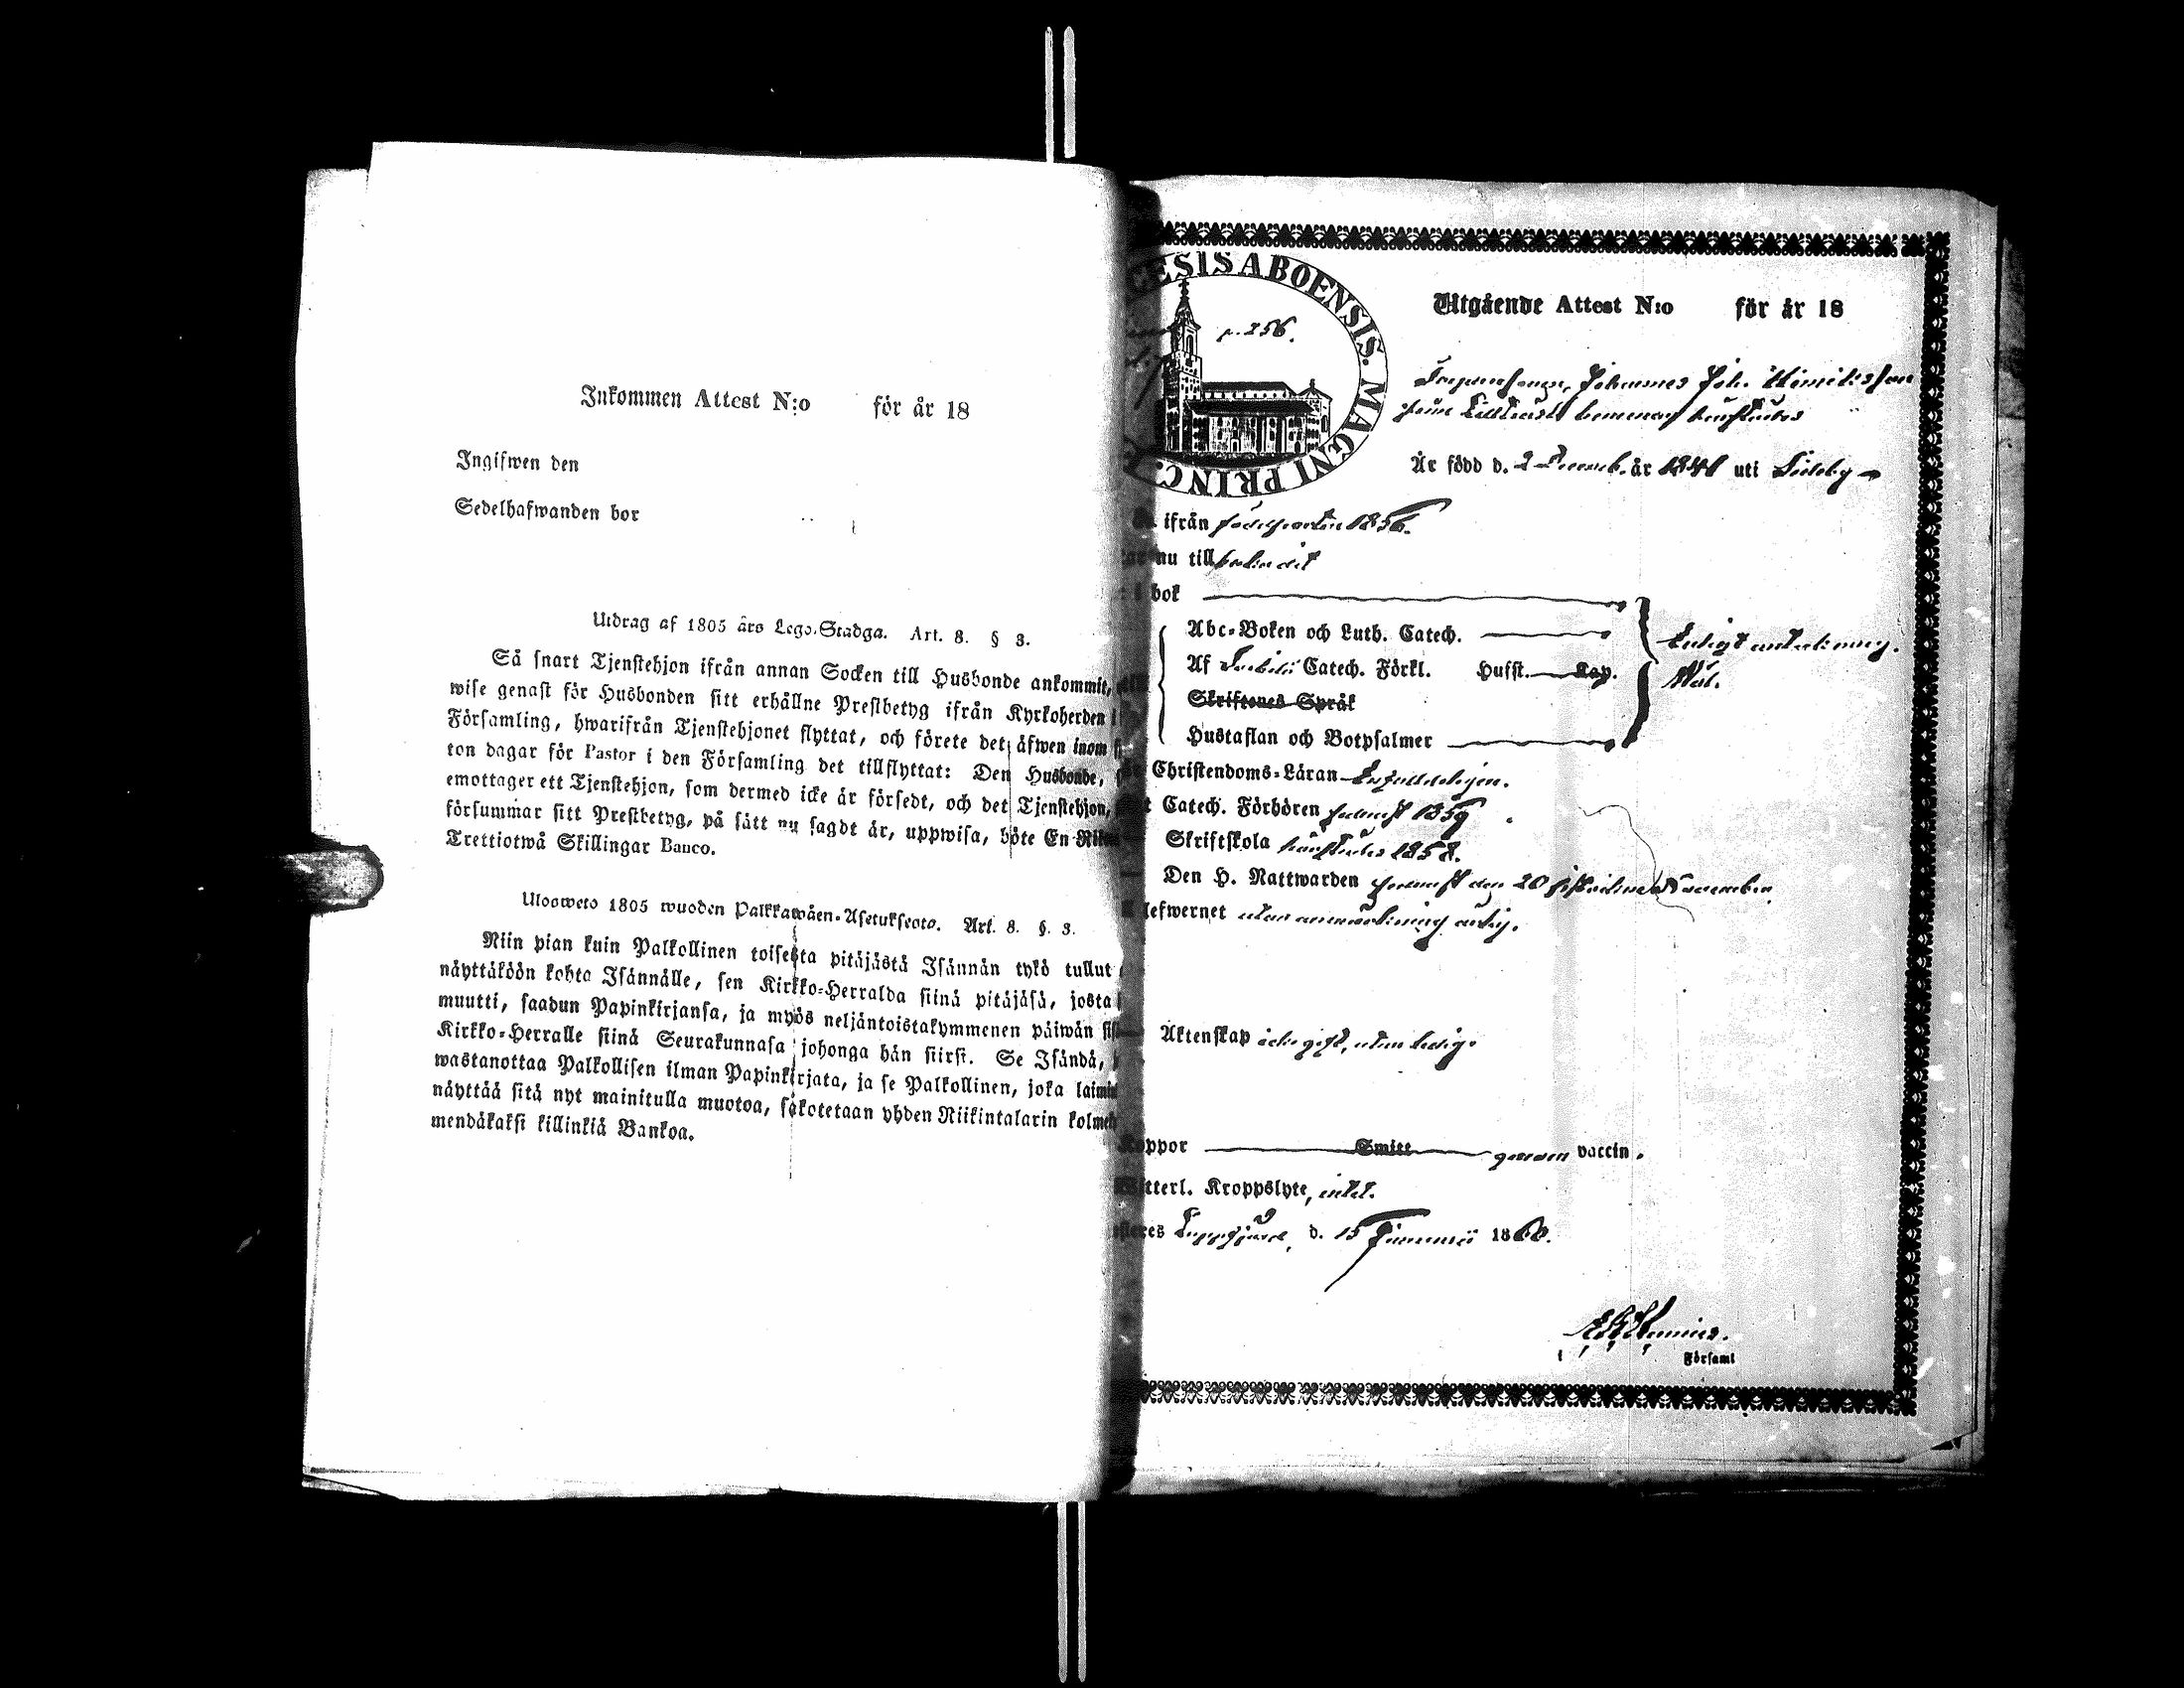 Inkommen Attest N:o för år 18
Ingifwen den
Sedelhafwanden bor
Utdrag af 1805 års Lego-Stadga. Art. 8. § 3.
Så snart Tjenstehjon ifrån annan Socken till Husbonde ankommit,
wise genast för Husbonden sitt erhållne Prestbetyg ifrån Kyrkoherden i
Församling, hwarifrån Tjenstehjonet flyttat, och förete det äfwen inom
ton dagar för Pastor i den Församling det tillflyttat: Den Husbonde,
emottager ett Tjenstehjon, som dermed icke är försedt, och det Tjenstehjon,
försummar sitt Prestbetyg, på sätt nu sagdt är, uppwisa, böte En Riks
Trettiotwå Skillingar Banco.
Ulosweto 1805 wuoden Palkkawäen-Asetuksesta. Art. 8. §. 3.
Niin pian kuin Palkollinen toisesta pitäjästä Isännän tykö tullut
näyttäköön kohta Isännälle, sen Kirkko-Herralda siinä pitäjäsä, josta
muutti, saadun Papinkirjansa, ja myös neljäntoistakymmenen päiwän sis
Kirkko-Herralle siinä Seurakunnasa johonga hän siirsi. Se Isändä,
wastanottaa Palkollisen ilman Papinkirjata, ja se Palkollinen, joka laimin
näyttää sitä nyt mainitulla muotoa, sakotetaan yhden Riikintalarin kolmen
mendäkaksi killinkiä Bankoa.
CESIS ABOENSIS. MAGNI PRINC.
p. 256.
Utgående Attest N:o för år 18
Johannes Joh.
Är född d. 2 Decemb. år 1841 uti Sideby
ifrån födelseorten 1856.
nu till
bok
Abc-Boken och Luth. Catech.
Enligt anteckning.
Af Svebilii Catech. Förkl. Husst. Kap.
Wäl.
Skriftenes Språk
Hustaflan och Botpsalmer
Christendoms-Läran Enfaldeligen.
Catech. Förhören 1859
Skriftskola 1858.
Den H. Nattwarden den 20 sistledne November
lefwernet utan anmärkning ärlig.
Äktenskap icke gift, utan ledig.
Koppor Smitt genom vaccin.
Witterl. Kroppslyte, intet.
Lappfjärd, d. 15 Januarii 1860.
Församl